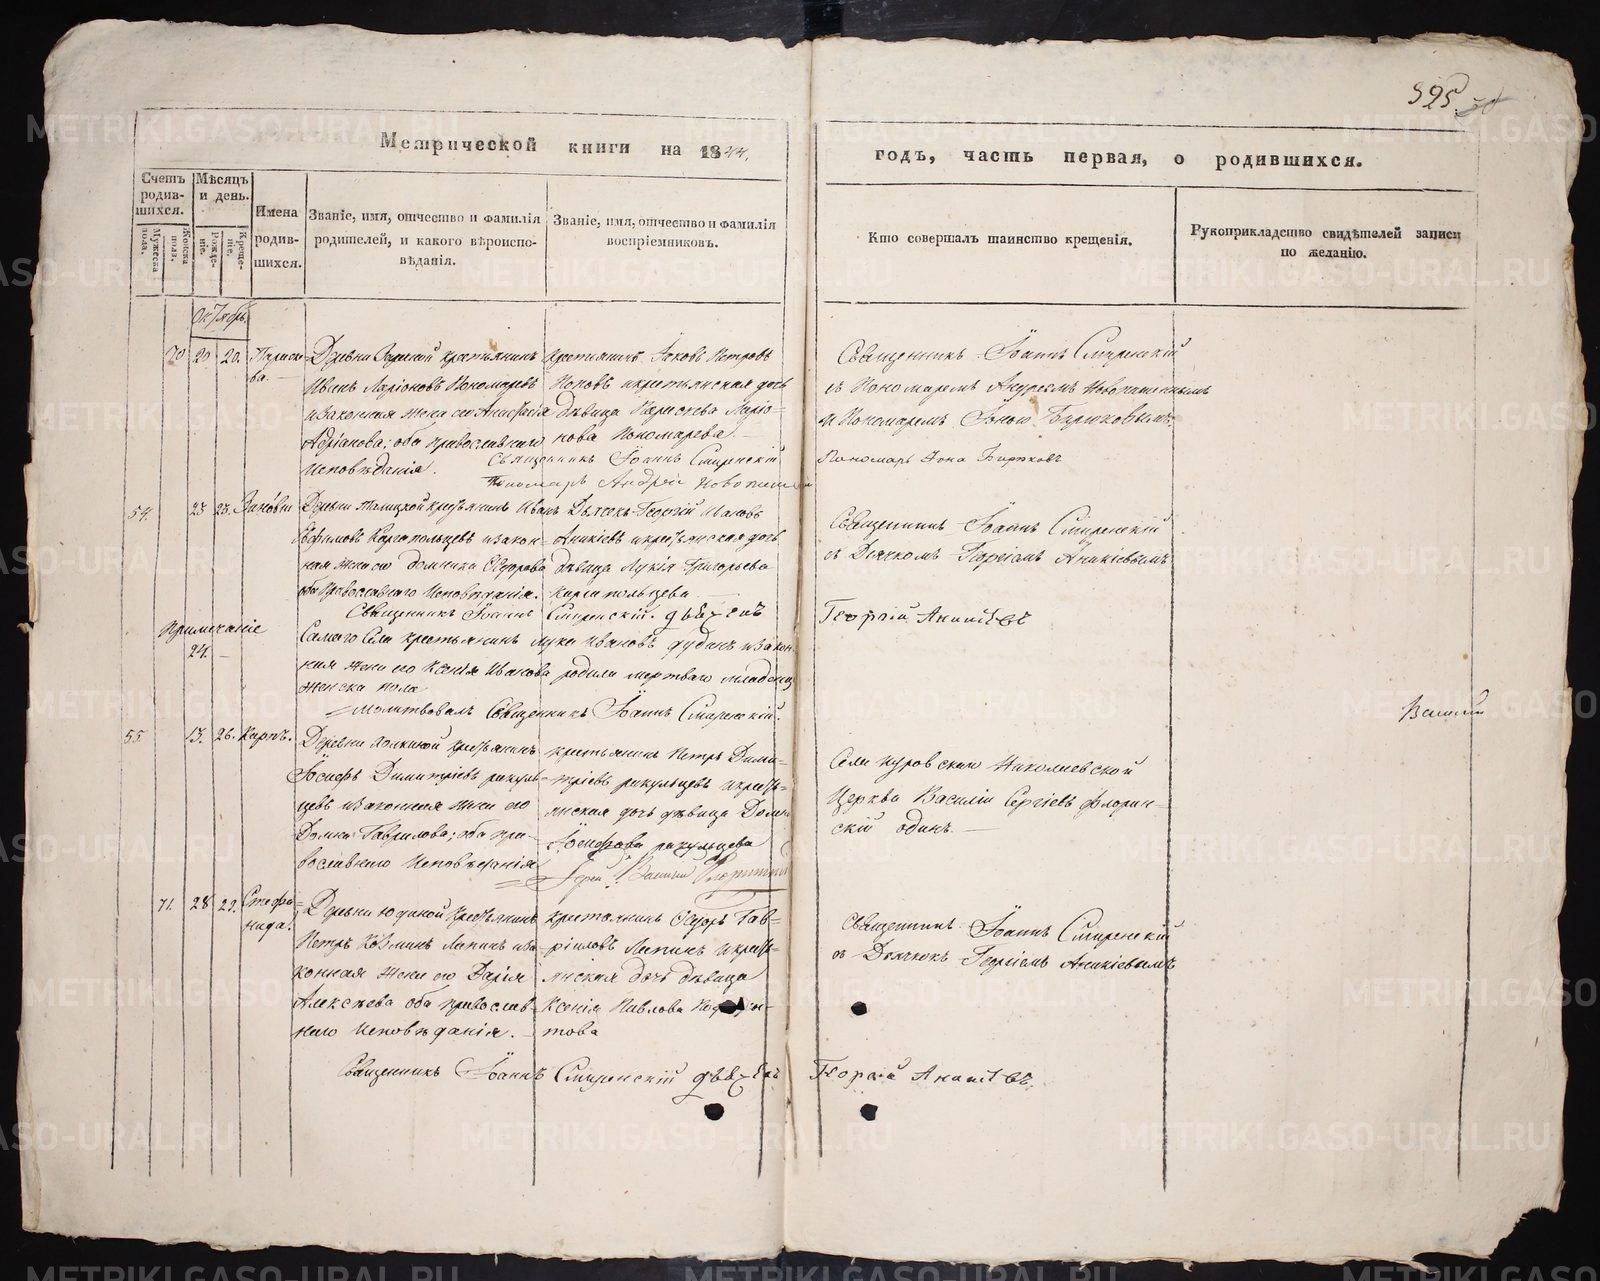 395
Метрической книги на 1844.
годъ, часть первая, о родившихся.
Счетъ родившихся.
Мужеска пола.
Женска пола.
Мѣсяцъ и день.
Рожденіе.
Крещеніе.
Имена родившихся.
Званіе, имя, отчество и фамилія родителей, и какого вѣроисповѣданія.
Званіе, имя, отчество и фамилія воспріемниковъ.
Кто совершалъ таинство крещенія.
Рукоприкладство свидѣтелей записи по желанію.
Октябрь
70 20 20. Параскева.
Деревни крестьянинъ
Иванъ Ларіоновъ Пономаревъ
и законная жена его Анастасія
Адріанова; оба православнаго
исповѣданія.
Крестьянинъ Іаковъ Петровъ
Поповъ и крестьянская дочь
дѣвица Параскева Ларіо-
нова Пономарева
Священникъ Іоаннъ Смиренскій
съ Пономаремъ Андреемъ
и Пономаремъ Іоною Бирюковымъ
Священникъ Іоаннъ Смиренскій
Пономарь Андрей
Пономарь Іона Бирюковъ
54. 23 23. Зиновія
Деревни крестьянинъ Иванъ
Ефимовъ Каргопольцевъ и закон-
ная жена его Домника Ѳедорова
оба Православнаго Исповѣданія.
Дьячекъ Георгій Ивановъ
Аникіевъ и крестьянская дочь
дѣвица Лукія Григорьева
Каргопольцева
Священникъ Іоаннъ Смиренскій
съ Дьячкомъ Георгіемъ Аникіевымъ
Священникъ Іоаннъ Смиренскій. Дьячекъ
Георгій Аникіевъ
Примечаніе
24.
Самаго Села крестьянинъ Лука Ивановъ Дудинъ и закон-
ная жена его Ксенія Иванова родила мертваго младенца
женска пола
Молитвовалъ Священникъ Іоаннъ Смиренскій.
55 13. 26. Карпъ.
Деревни крестьянинъ
Іосифъ Димитріевъ ракуль-
цевъ и законная жена его
Домна Гаврилова; оба пра-
вославнаго Исповѣданія
крестьянинъ Петръ Дими-
тріевъ ракульцевъ и кресть-
янская дочь дѣвица
Іосифова ракульцева
Іерей Василій Флоринскій
Села куровскаго Николаевской
Церкви Василій Сергіевъ Флорин-
скій одинъ.
Василій
71. 28 29. Стефанида.
Деревни Юдиной Крестьянинъ
Петръ Козминъ Лапинъ и за-
конная жена его Дарія
Алексѣева оба православ-
наго Исповѣданія.
крестьянинъ Ѳедоръ Гав-
ріиловъ Лапинъ и кресть-
янская дочь дѣвица
Ксенія Павлова
Священникъ Іоаннъ Смиренскій
съ Дьячкомъ Георгіемъ Аникіевымъ
Священникъ Іоаннъ Смиренскій Дьячекъ
Георгій Аникіевъ.
METRIKI.GASO-URAL.RU